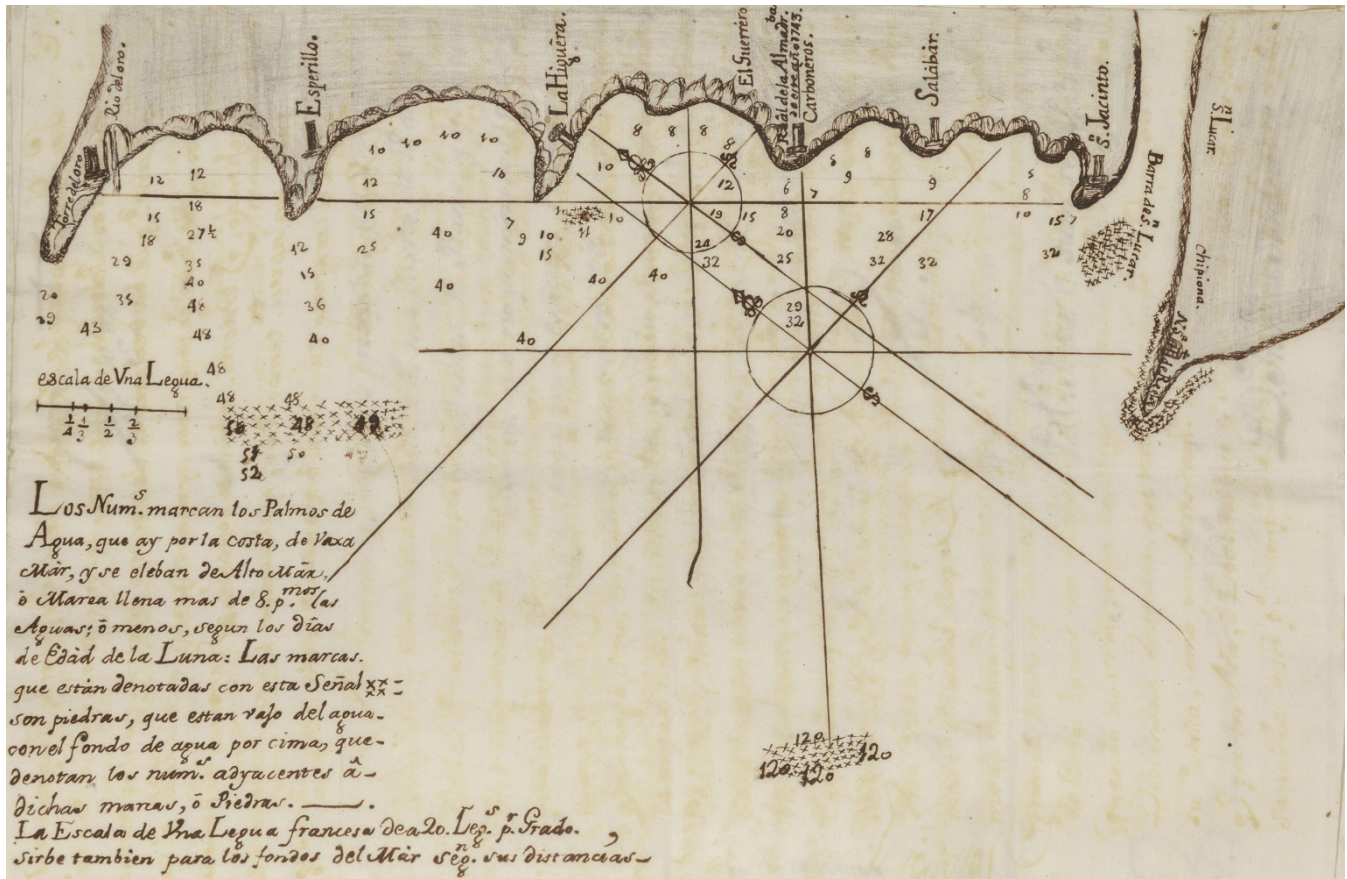 Rio del oro.
Torre del oro
Esperillo.
La Higuera.
El Guerrero
Real de la Almadr.ba
de este año 1743.
Carboneros.
Salabár.
S.n Jacinto.
Barra de S.n Lucar.
S.n Lucar
Chipiona.
N.s.a de Regla
8 8 8
10 10 10 10
8
5 8
12 12
12
10
10
12
6
9
9
5
18
7
8
15
15
7
10
19 15
8
17
10 15 7
18 27½
12
25
40
9 10
11
20
28
29
35
15
15
24
32
25
32
32
32
40
40
40 40
20
35
48
36
29
29
32
43
48
40
40
escala de Vna Legua.
48
¼ ⅓ ½ ⅔
48 48
50 48 49
51 50
52
Los Num.s marcan los Palmos de
Agua, que ay por la costa, de Vaxa
Már, y se eleban de Alto Már,
ò Marea llena mas de 8. p.mos las
Aguas; ò menos, segun los días
de Edád de la Luna: Las marcas.
que están denotadas con esta Señal xx=
son piedras, que estan vajo del agua-
con el fondo de agua por cima, que-
denotan los num.s adyacentes â-
dichas marcas, ò Piedras. ——.
La Escala de Vna Legua francesa de a 20. Leg.s p.r Grado.,
sirbe tambien para los fondos del Már seg.n sus distancias-
120
120 120 120